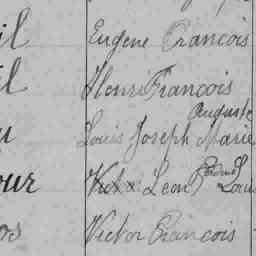 il Eugene Francois
il Henri Francois
Auguste
u Louis Joseph Marie
our Victor Leon Louis
os Victor Francois